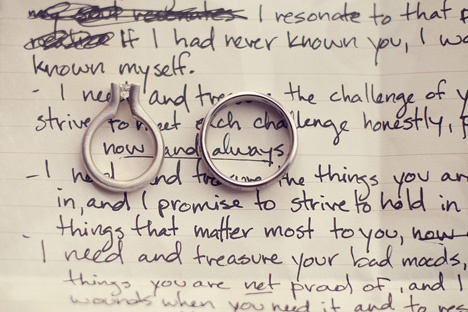 my soul resonates I resonate to that
If I had never known you, I
known myself.
- I need and treasure the challenge of
strive to meet each challenge honestly,
now and always
- I need and treasure the things you
in, and I promise to strive to hold in
things that matter most to you, now
- I need and treasure your bad moods,
things you are not proud of, and I
wounds when you need it and to